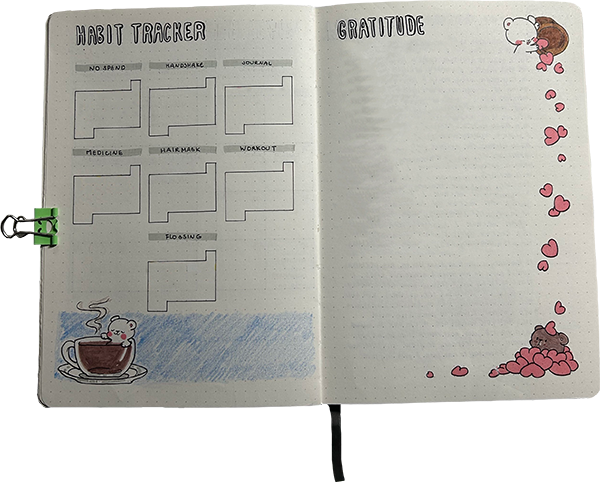 HABIT TRACKER
NO SPEND HANDSHAKE JOURNAL
MEDICINE HAIRMASK WORKOUT
FLOSSING
GRATITUDE